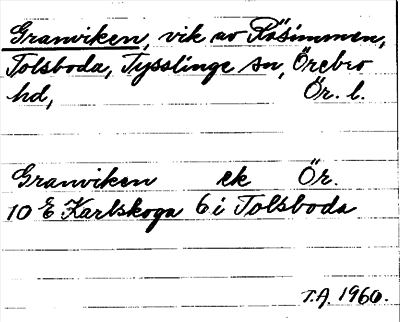 Granviken, vik av Råsimmen,
Tolsboda, Tysslinge sn, Örebro
hd, Ör. l.
Granviken ek Ör.
10 E Karlskoga 6 i Tolsboda
T.A. 1960.